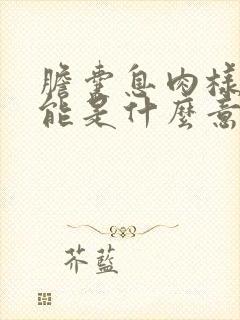 膽囊息肉樣
能是什麼意
芥藍